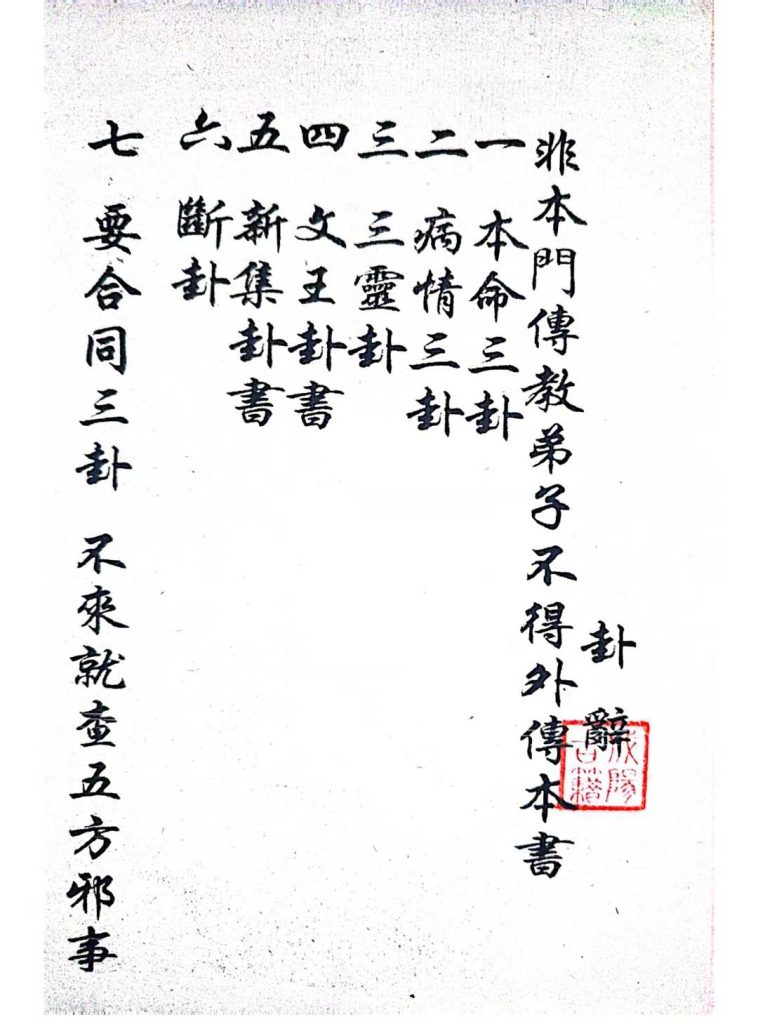 卦辭
非本門傳教弟子不得外傳本書
一 本命三卦
二 病情三卦
三 三靈卦
四 文王卦書
五 新集卦書
六 斷卦
七 要合同三卦 不來就查五方邪事
古籍